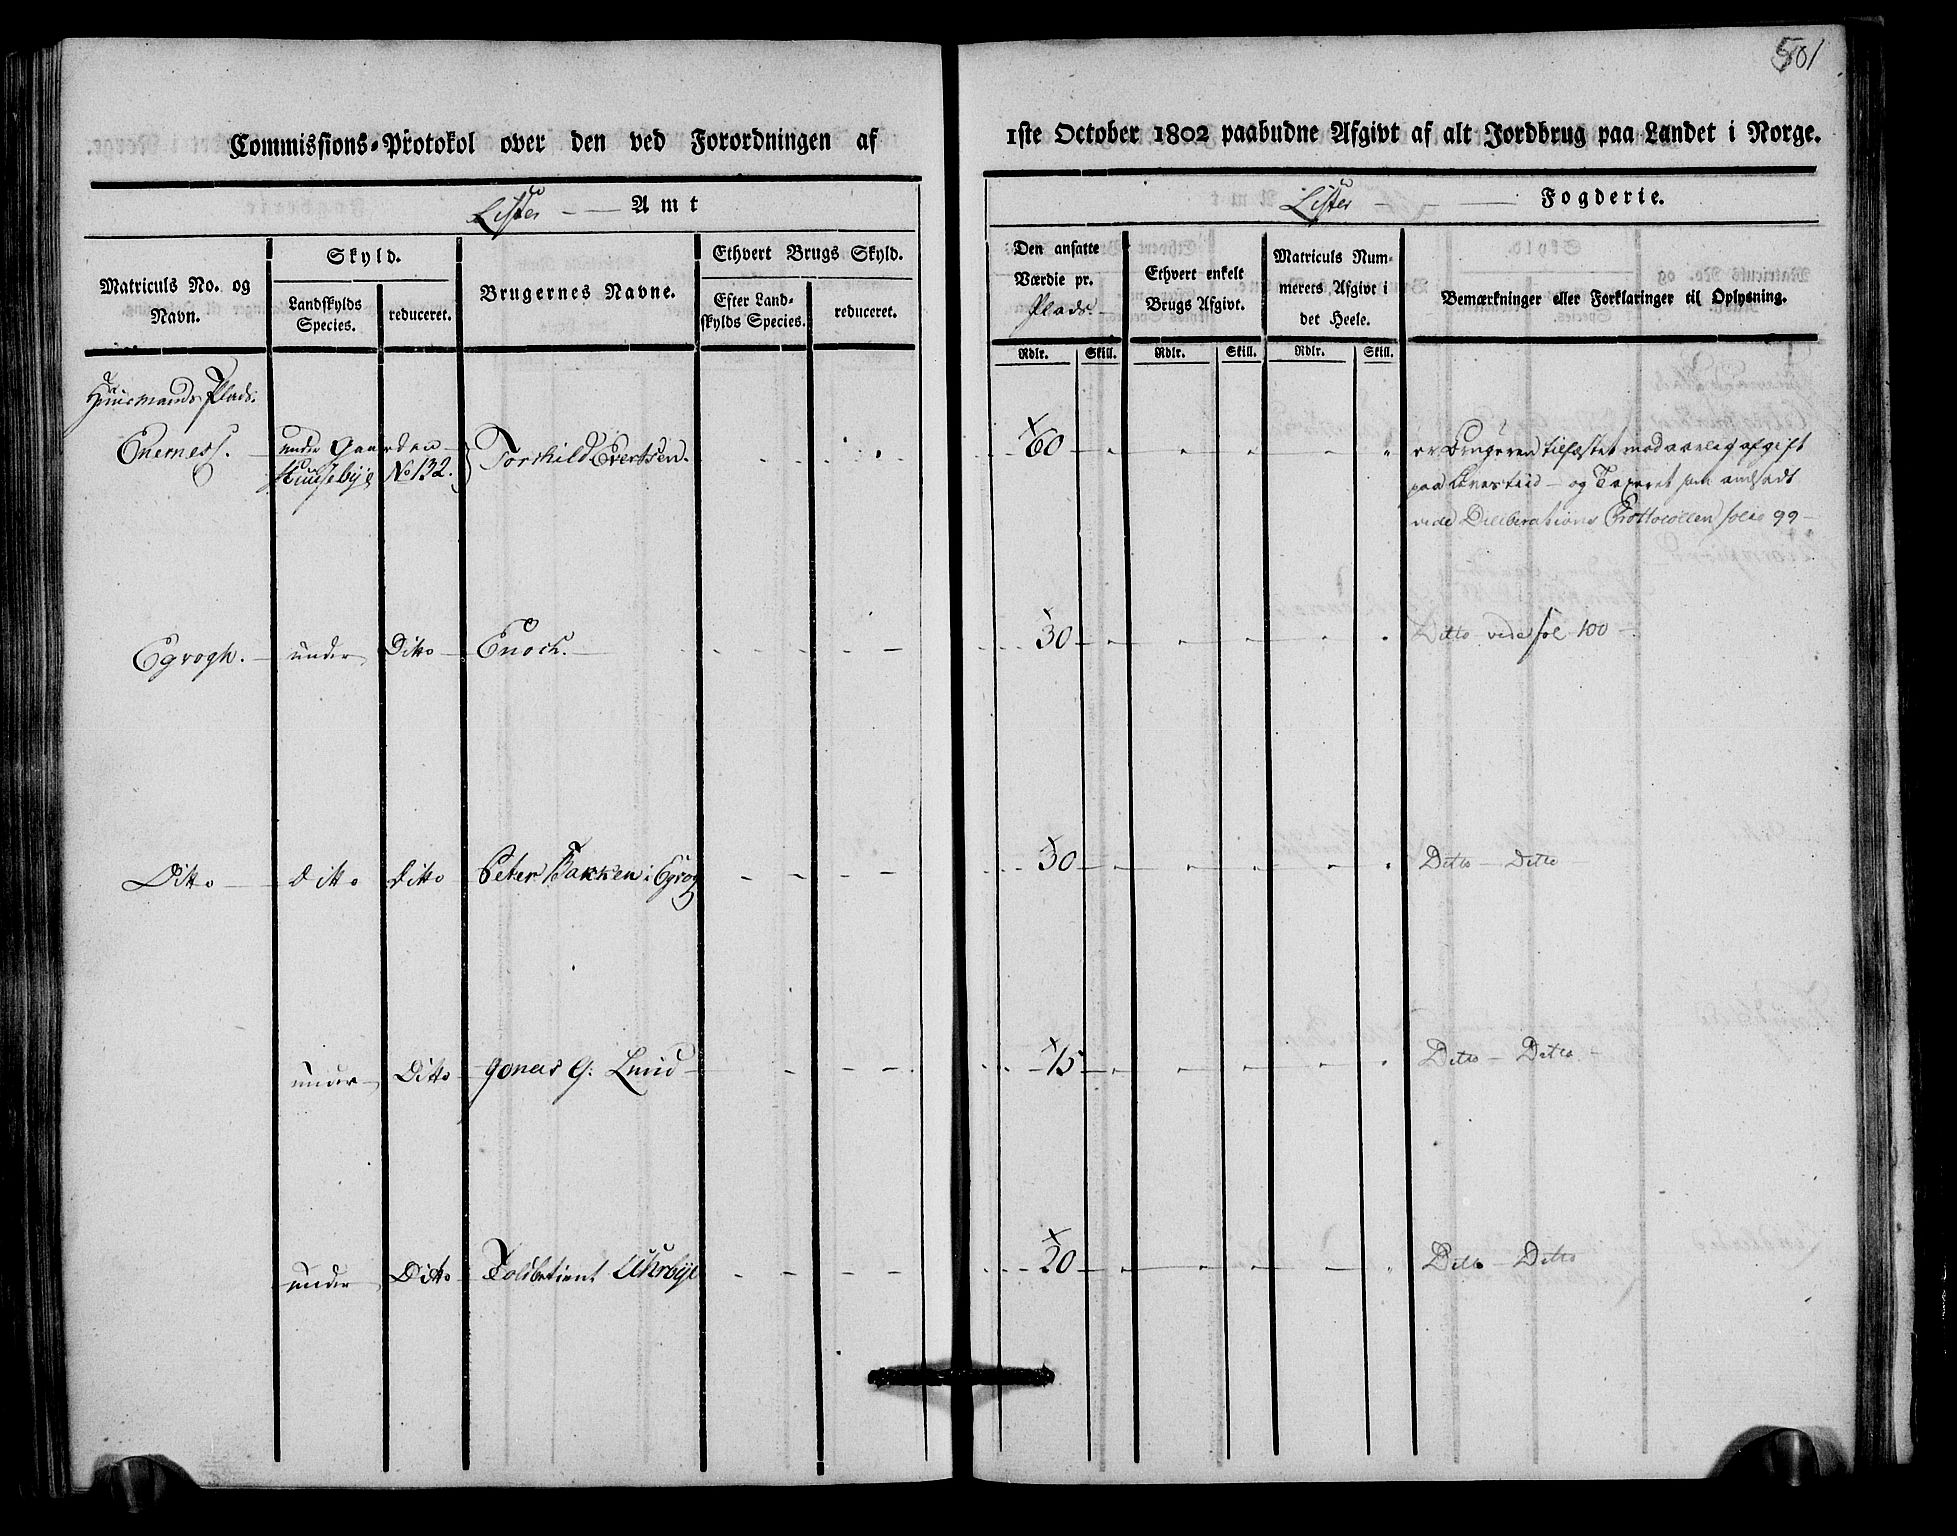 501
Commissions-Protokol over den ved Forordningen af 1ste October 1802 paabudne Afgivt af alt Jordbrug paa Landet i Norge.
Lister - — Amt
Lister - — Fogderie.
Matriculs No. og Navn.
Skyld.
Landskylds Species.
reduceret.
Brugernes Navne.
Ethvert Brugs Skyld.
Efter Landskylds Species.
reduceret.
Den ansatte Værdie pr. Plads.
Ethvert enkelt Brugs Afgivt.
Matriculs Nummerets Afgivt i det Heele.
Bemærkninger eller Forklaringer til Oplysning.
Rdlr. Skill. Rdlr. Skill. Rdlr. Skill.
Huusmands Plads:
Enemess. under Gaarden Huusebÿe No 132. Torkild Evertsen. 60
er Brugeren tilfæstet mod aarlig afgift
paa Livestiid — og Taxeret som andsadt
vide Deliberations Prottocollen folio 99 —
Egrogh. under Ditto Enoch. 30 Ditto vide fol 100 —
Ditto Ditto Ditto Peter Bakken i Egrog 30 Ditto — Ditto
under Ditto Jonas G: Lund 15 Ditto — Ditto
under Ditto Tolbetient 20 Ditto — Ditto